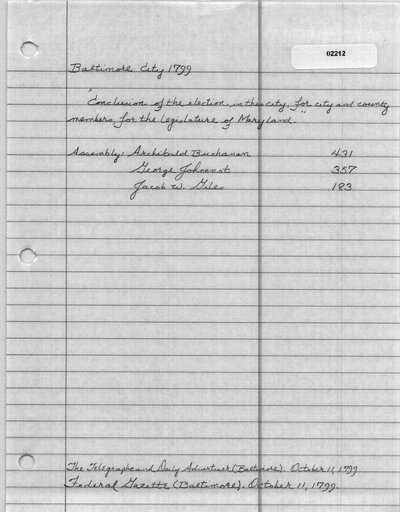 02212
Baltimore City 1799
"Conclusion of the election, in this city, for city and county
members, for the Legislature of Maryland."
Assembly: Archibald Buchanan 431
George Johonnot 357
Jacob W. Giles 183
The Telegraphe and Daily Advertiser (Baltimore). October 11, 1799
Federal Gazette (Baltimore). October 11, 1799.